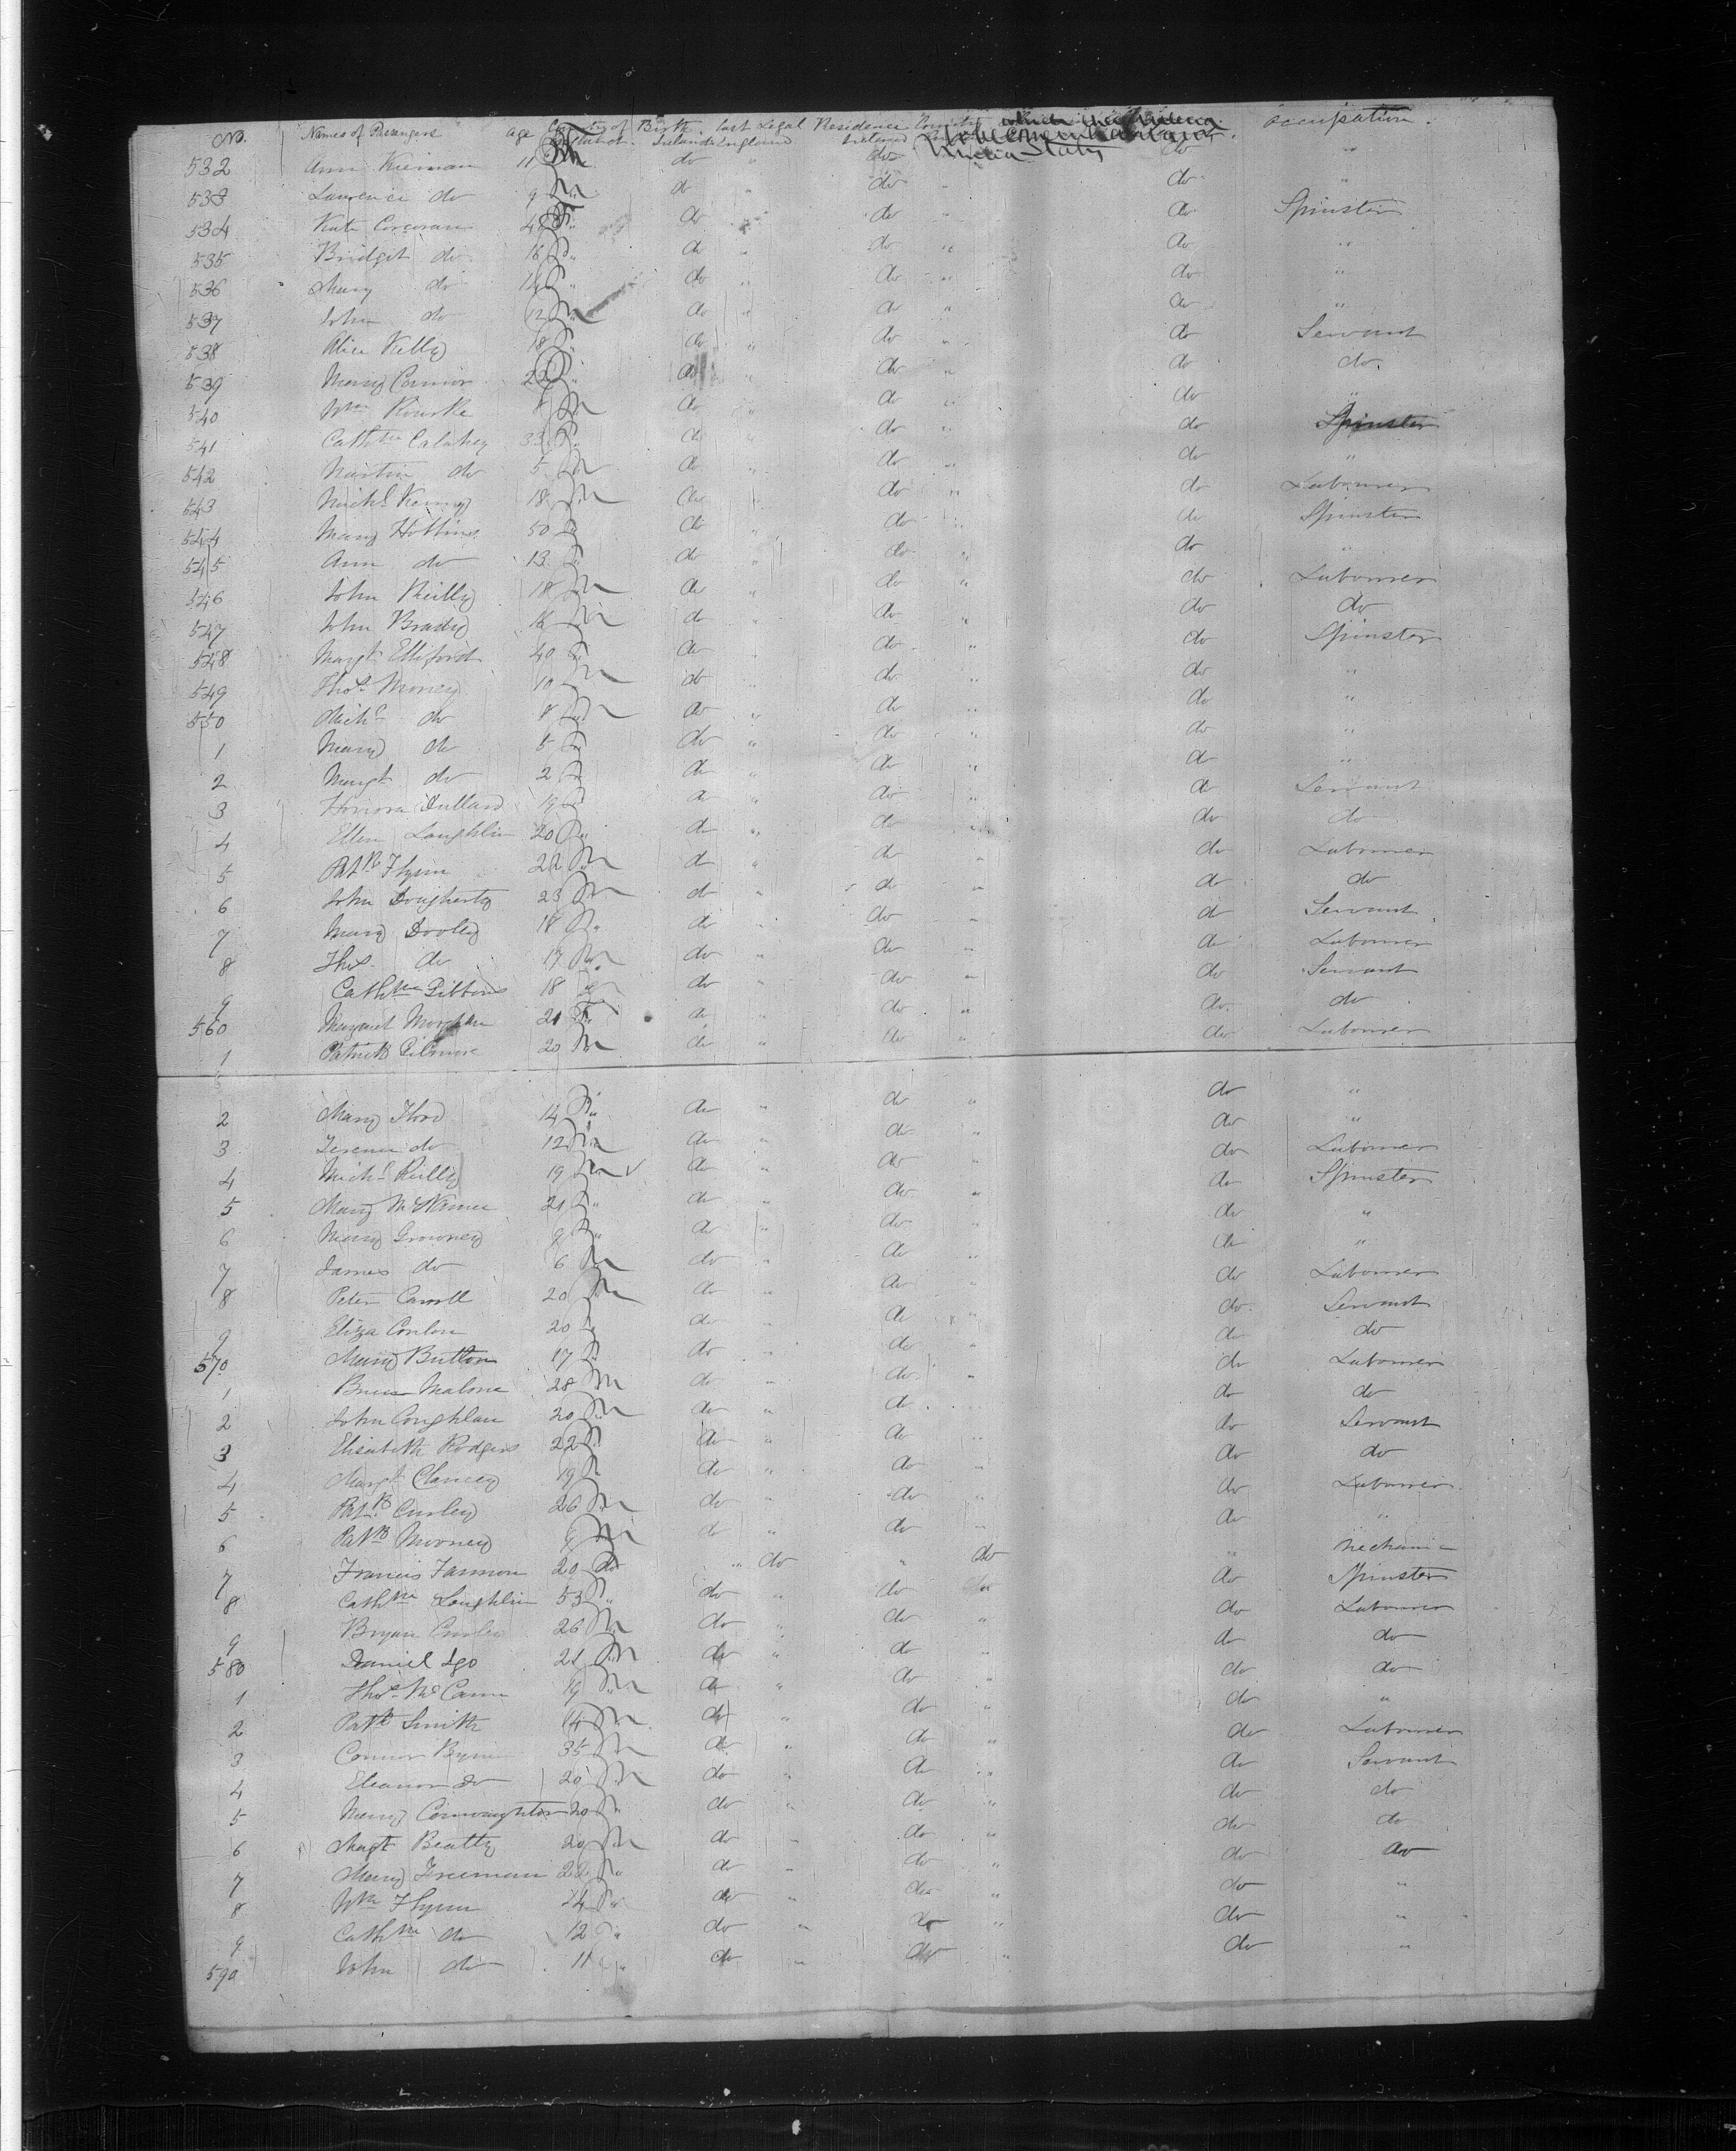 No. Names of Passengers age Country of Birth. last Legal Residence occupation.
Ireland England Ireland
United States
532 Ann Kiernan 11 do do do "
533 Lawrence do 9 M do " do " do "
534 Kate Corcoran F " do " do " do Spinster
535 Bridget do 16 F " do " do " do "
536 Mary do 14 F " do " do " do "
537 John do 12 M do " do " do "
538 Alice Kelly 18 F " do " do " do Servant
539 Mary Connor 22 F " do " do " do do
540 Wm Rourke 8 M do " do " do "
541 Cathne Calahey 33 F " do " do " do Spinster
542 Martin do 5 M do " do " do "
543 Michl Kenny 18 M do " do " do Labourer
544 Mary Hobbins 50 F do " do " do Spinster
545 Ann do 13 F do " do " do "
546 John Reilly 18 M do " do " do Labourer
547 John Brady 16 M do " do " do do
548 Margt Elliford 40 F do " do " do Spinster
549 Thos Mooney 10 M do " do " do "
550 Michl do 8 M do " do " do "
1 Mary do 5 F do " do " do "
2 Margt do 2 F do " do " do "
3 Honora Dullard 19 F do " do " do Servant
4 Ellen Loughlin 20 F " do " do " do do
5 Patk Flynn 22 M do " do " do Labourer
6 John Dougherty 23 M do " do " do do
7 Mary Dooley 18 F " do " do " do Servant
8 Thos do 17 M do " do " do Labourer
9 Cathne Gibbons 18 do " do " do Servant
560 Margaret 21 F " do " do " do do
1 Patrick Gilmore 20 M do " do " do Labourer
2 Mary 14 F " do " do " do "
3 Terence do 12 M do " do " do "
4 Michl Reilly 19 M √ do " do " do Labourer
5 Mary McNamee 21 F " do " do " do Spinster
6 Mary Growney 8 F " do " do " do "
7 James do 6 M do " do " do "
8 Peter Carroll 20 M do " do " do Labourer
9 Eliza Conlon 20 F do " do " do Servant
570 Mary Button 17 F do " do " do do
1 Malone 28 M do " do " do Labourer
2 John Coughlan 20 M do " do " do do
3 Elisabeth Rodgers 22 F do " do " do Servant
4 Margt Clancey 19 F do " do " do do
5 Patk Curley 26 M do " do " do Labourer
6 Patk Mooney M do " do " do "
7 Francis Fannon 20 do " do " do " Mechanic
8 Cathne Loughlin 53 F " do " do do do Spinster
9 Bryan Curley 26 M do " do " do Labourer
580 Daniel Igo 21 M do " do " do do
1 Thos McCann 19 M do " do " do do
2 Patk Smith 14 M do " do " do "
3 Connor Byrne 35 M do " do " do Labourer
4 Eleanor do 20 M do " do " do Servant
5 Mary Connaughton 20 F " do " do " do do
6 Magt Beatty 20 M do " do " do do
7 Mary Freeman 22 F " do " do " do do
8 Wm Flynn 14 do " do " do "
9 Cathne do 12 " do " do " do "
590 John do 11 " do " do " do "